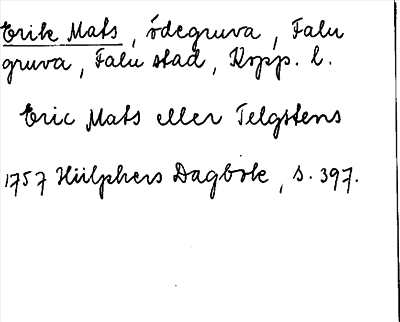 Erik Mats, ödegruva, Falu
gruva, Falu stad, Kopp. l.
Eric Mats eller Telgstens
1757 Hülphers Dagbok, s. 397.